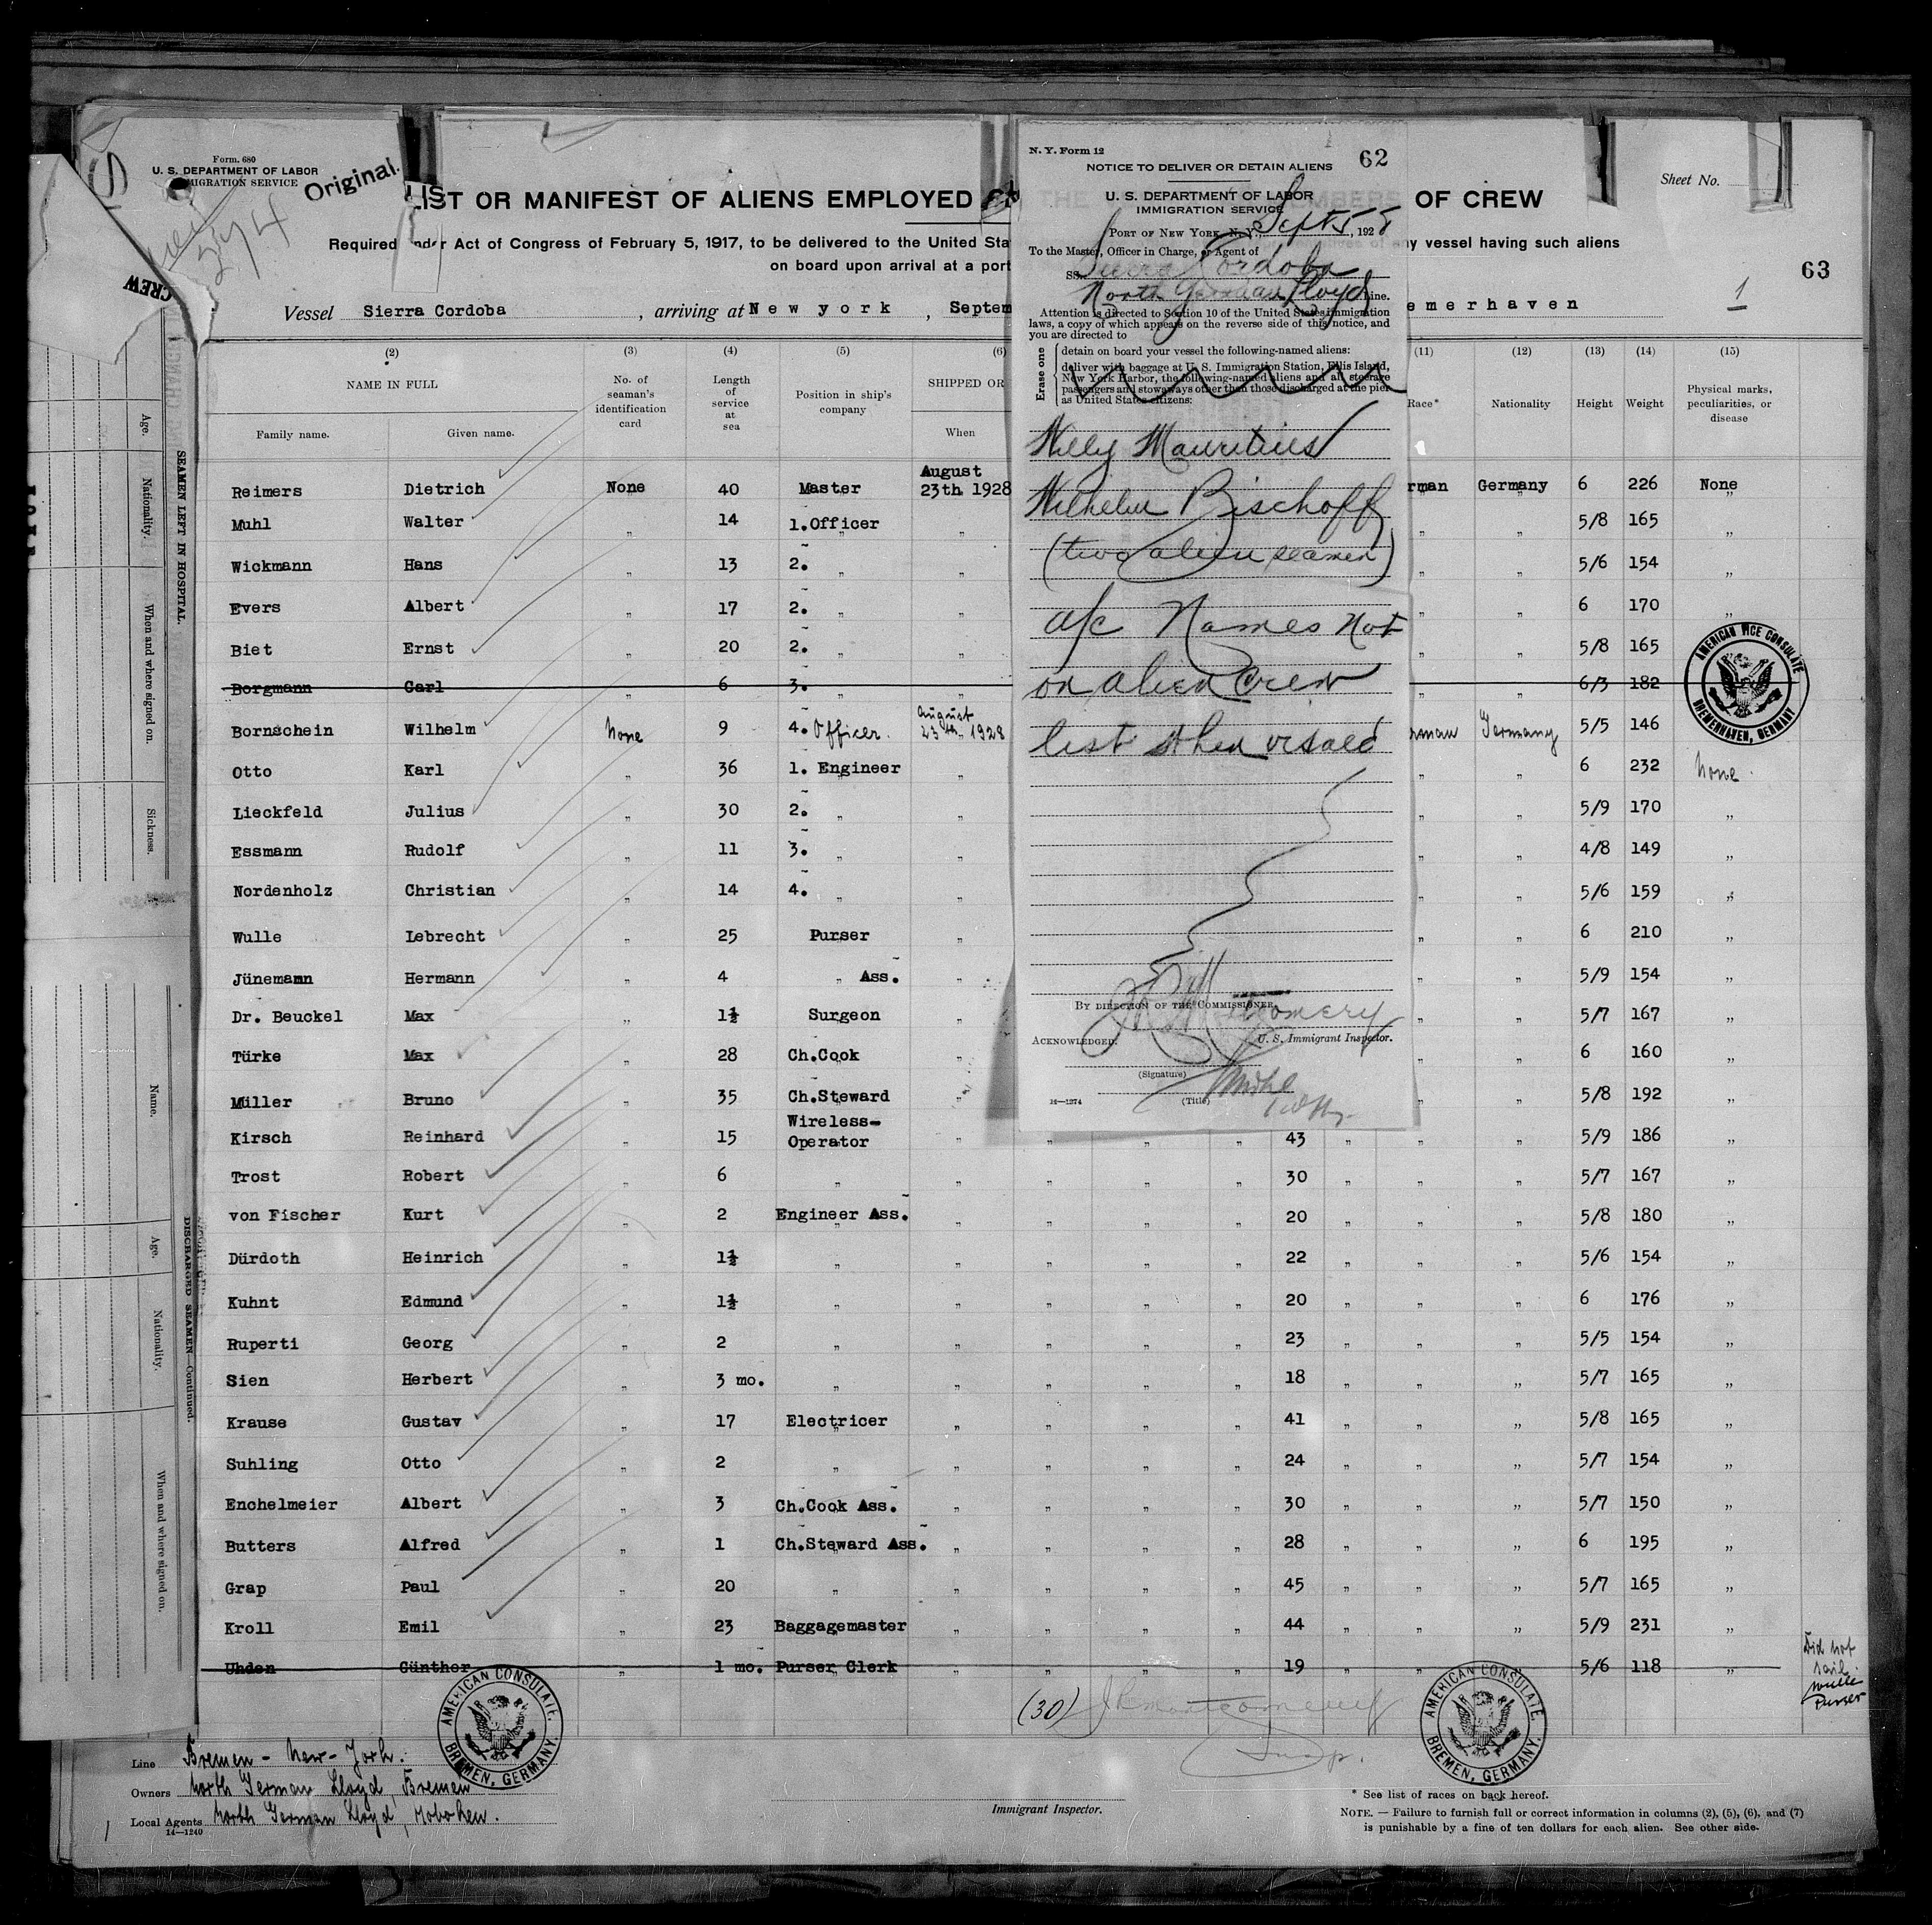 Form. 680
U. S. DEPARTMENT OF LABOR
MIGRATION SERVICE
Original.
274
CREW
LIST OR MANIFEST OF ALIENS EMPLOYED
OF CREW
Sheet No.
1
63
Required under Act of Congress of February 5, 1917, to be delivered to the United Sta
ny vessel having such aliens
on board upon arrival at a port
Vessel Sierra Cordoba , arriving at New york , Septem
emerhaven
(2) (3) (4) (5) (6) (11) (12) (13) (14) (15)
NAME IN FULL
Family name. Given name.
No. of seaman's identification card
Length of service at sea
Position in ship's company
SHIPPED OR
When
Race*
Nationality
Height
Weight
Physical marks, peculiarities, or disease
August
Reimers Dietrich None 40 Master 23th 1928 rman Germany 6 226 None
Muhl Walter „ 14 1.Officer „ „ „ 5/8 165 „
Wickmann Hans „ 13 2. „ „ „ „ 5/6 154 „
Evers Albert „ 17 2. „ „ „ „ 6 170 „
Biet Ernst „ 20 2. „ „ „ „ 5/8 165 „
Borgmann Carl „ 6 3. „ „ „ „ 6/3 182
August
Bornschein Wilhelm None 9 4. Officer. 23th 1928 rman Germany 5/5 146
Otto Karl „ 36 1. Engineer „ „ „ 6 232 None.
Lieckfeld Julius „ 30 2. „ „ „ „ 5/9 170 „
Essmann Rudolf „ 11 3. „ „ „ „ 4/8 149 „
Nordenholz Christian „ 14 4. „ „ „ „ 5/6 159 „
Wulle Lebrecht „ 25 Purser „ „ „ 6 210 „
Jünemann Hermann „ 4 „ Ass. „ „ „ 5/9 154 „
Dr. Beuckel Max „ 1½ Surgeon „ „ „ 5/7 167 „
Türke Max „ 28 Ch.Cook „ „ „ 6 160 „
Müller Bruno „ 35 Ch.Steward „ „ „ 5/8 192 „
Wireless-
Kirsch Reinhard „ 15 Operator „ „ „ „ 43 „ „ „ 5/9 186 „
Trost Robert „ 6 „ „ „ „ „ 30 „ „ „ 5/7 167 „
von Fischer Kurt „ 2 Engineer Ass. „ „ „ „ 20 „ „ „ 5/8 180 „
Dürdoth Heinrich „ 1½ „ „ „ „ „ 22 „ „ „ 5/6 154 „
Kuhnt Edmund „ 1½ „ „ „ „ „ 20 „ „ „ 6 176 „
Ruperti Georg „ 2 „ „ „ „ „ 23 „ „ „ 5/5 154 „
Sien Herbert „ 3 mo. „ „ „ „ „ 18 „ „ „ 5/7 165 „
Krause Gustav „ 17 Electricer „ „ „ „ 41 „ „ „ 5/8 165 „
Suhling Otto „ 2 „ „ „ „ „ 24 „ „ „ 5/7 154 „
Enchelmeier Albert „ 3 Ch.Cook Ass. „ „ „ „ 30 „ „ „ 5/7 150 „
Butters Alfred „ 1 Ch.Steward Ass. „ „ „ „ 28 „ „ „ 6 195 „
Grap Paul „ 20 „ „ „ „ „ 45 „ „ „ 5/7 165 „
Kroll Emil „ 23 Baggagemaster „ „ „ „ 44 „ „ „ 5/9 231 „
Uhden Günther „ 1 mo. Purser Clerk „ „ „ „ 19 „ „ „ 5/6 118 „
Did not
sail.
Wulle
Purser
(30) J R Montgomery
Insp.
Immigrant Inspector.
Line Bremen - New-York.
Owners North German Lloyd, Bremen
Local Agents North German Lloyd, Hoboken.
14—1240
* See list of races on back hereof.
NOTE. — Failure to furnish full or correct information in columns (2), (5), (6), and (7)
is punishable by a fine of ten dollars for each alien. See other side.
AMERICAN CONSULATE.
BREMEN, GERMANY.
AMERICAN CONSULATE.
BREMEN, GERMANY.
AMERICAN VICE CONSULATE
BREMERHAVEN, GERMANY
N. Y. Form 12
62
NOTICE TO DELIVER OR DETAIN ALIENS
U. S. DEPARTMENT OF LABOR
IMMIGRATION SERVICE
PORT OF NEW YORK, N. Y., Sept 5, 1928
To the Master, Officer in Charge, or Agent of
SS. Sierra Cordoba
North German Lloyd Line.
Attention is directed to Section 10 of the United States immigration
laws, a copy of which appears on the reverse side of this notice, and
you are directed to
Erase one
detain on board your vessel the following-named aliens:
deliver with baggage at U. S. Immigration Station, Ellis Island,
New York Harbor, the following-named aliens and all steerage
passengers and stowaways other than those discharged at the pier
as United States citizens:
Willy Mauritius
Wilhelm Bischoff
(two alien seamen)
a/c Names Not
on alien Crew
list when visaed
BY DIRECTION OF THE COMMISSIONER.
J R Montgomery
U. S. Immigrant Inspector.
ACKNOWLEDGED:
(Signature)
Muhl
(Title)
14—1274
SEAMEN LEFT IN HOSPITAL.
Age.
Nationality.
When and where signed on.
Sickness.
DISCHARGED SEAMEN—Continued.
Name.
Age.
Nationality.
When and where signed on.